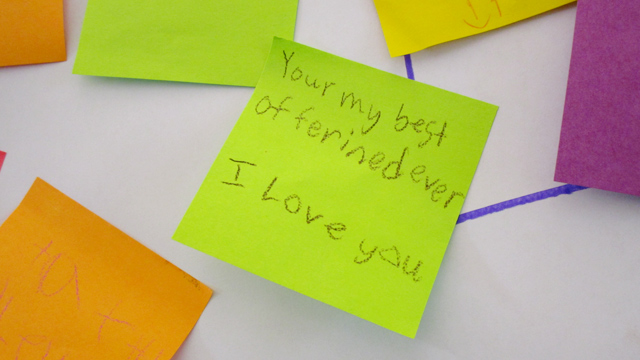 Your my best
of ferined ever
I Love you